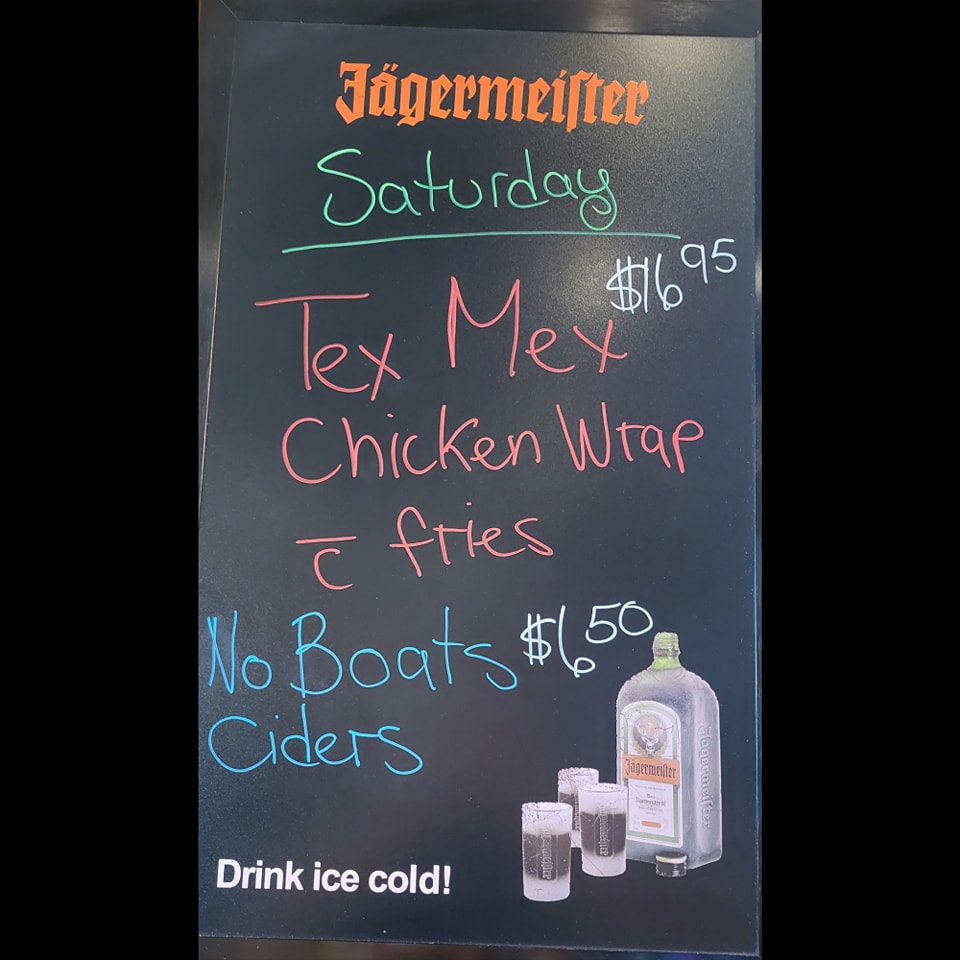 Jägermeister
Saturday
$16 95
Tex Mex
Chicken Wrap
c̄ fries
No Boats $6 50
Ciders
Jägermeister
Drink ice cold!